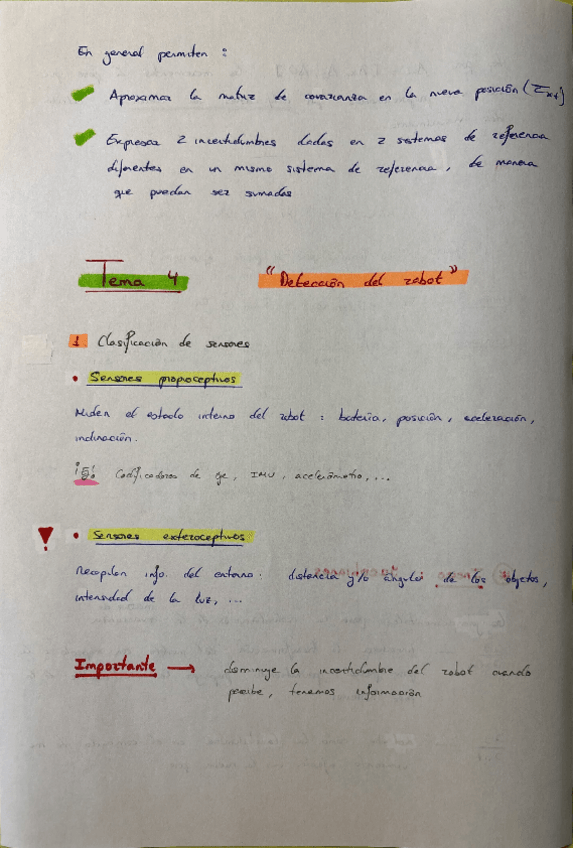 En general permiten :
Aproximar la matriz de covarianza en la nueva posición (Σx,t)
Expresar 2 incertidumbres dadas en 2 sistemas de referencia
diferentes en un mismo sistema de referencia, de manera
que puedan ser sumadas
Tema 4 "Detección del robot"
1 Clasificación de sensores
• Sensores propioceptivos
Miden el estado interno del robot : batería, posición, aceleración,
inclinación.
Codificadores de eje, IMU, acelerómetro, ...
! • Sensores exteroceptivos
Recopilan info. del entorno. distancia y/o ángulo de los objetos,
intensidad de la luz, ...
Importante → disminuye la incertidumbre del robot cuando
percibe, tenemos información